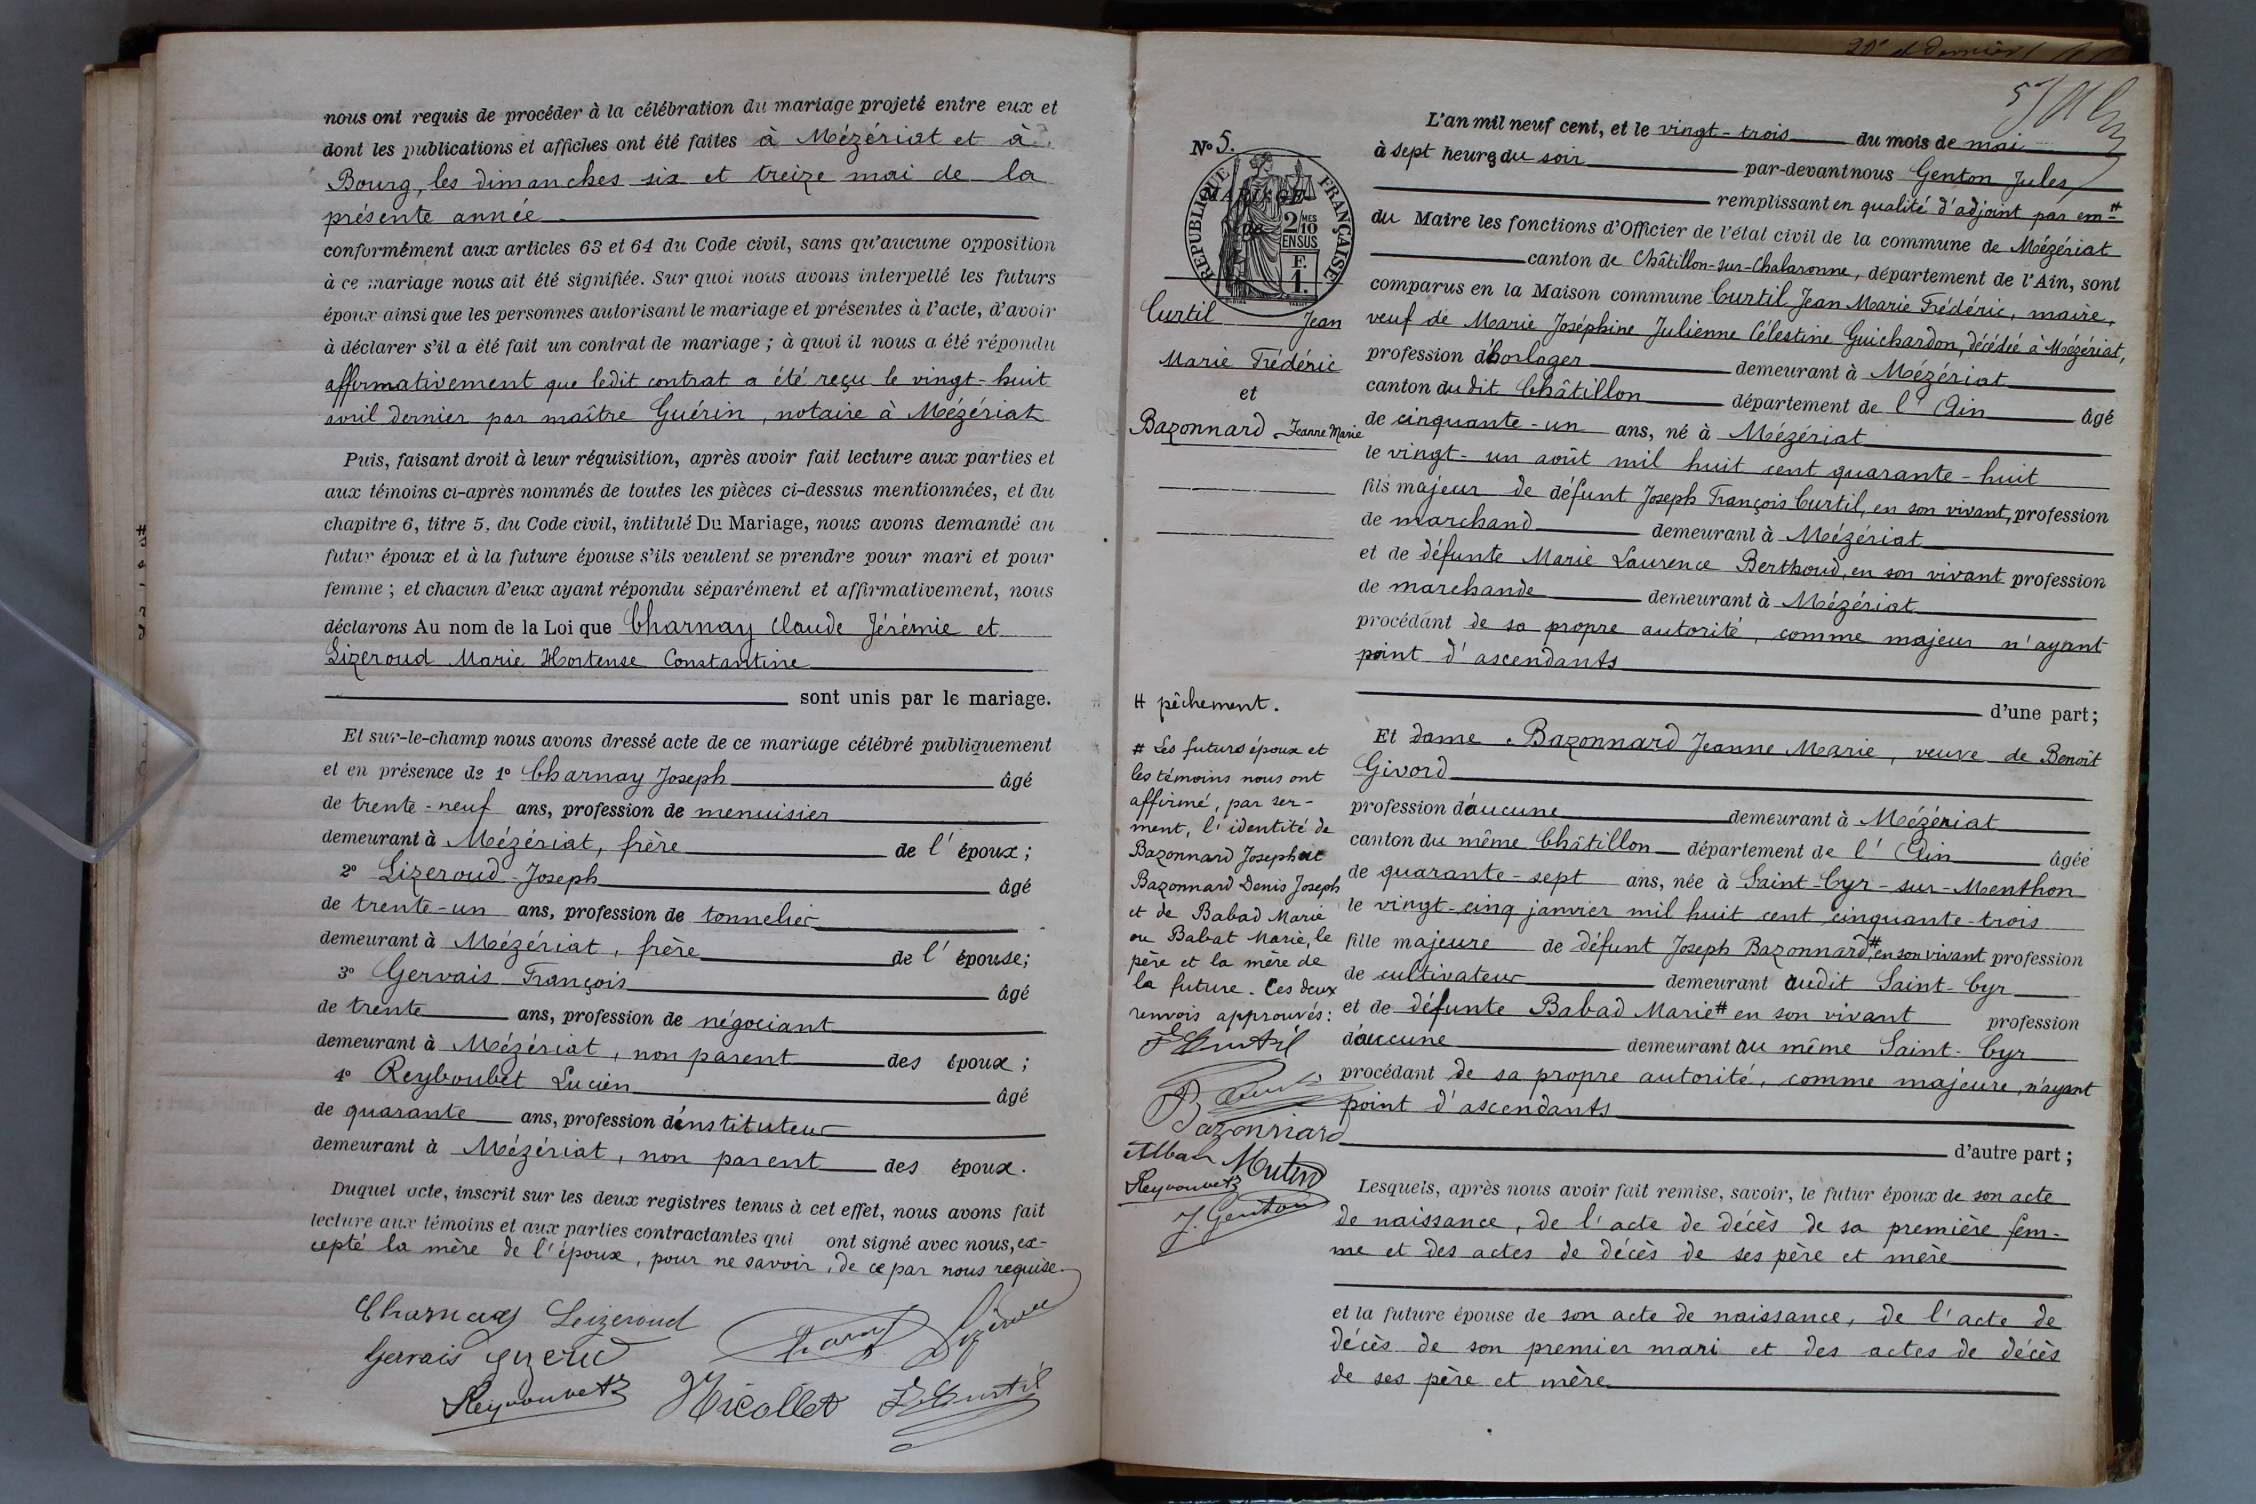 nous ont requis de procéder à la célébration du mariage projeté entre eux et
dont les publications et affiches ont été faites à Mézériat et à
Bourg, les dimanches six et treize mai de la
présente année
conformément aux articles 63 et 64 du Code civil, sans qu'aucune opposition
à ce mariage nous ait été signifiée. Sur quoi nous avons interpellé les futurs
époux ainsi que les personnes autorisant le mariage et présentes à l'acte, d'avoir
à déclarer s'il a été fait un contrat de mariage ; à quoi il nous a été répondu
affirmativement que ledit contrat a été reçu le vingt-huit
avril dernier par maître Guérin, notaire à Mézériat
Puis, faisant droit à leur réquisition, après avoir fait lecture aux parties et
aux témoins ci-après nommés de toutes les pièces ci-dessus mentionnées, et du
chapitre 6, titre 5, du Code civil, intitulé Du Mariage, nous avons demandé au
futur époux et à la future épouse s'ils veulent se prendre pour mari et pour
femme ; et chacun d'eux ayant répondu séparément et affirmativement, nous
déclarons Au nom de la Loi que Charnay Claude Jérémie et
Lizeroud Marie Hortense Constantine
sont unis par le mariage.
Et sur-le-champ nous avons dressé acte de ce mariage célébré publiquement
et en présence de 1° Charnay Joseph âgé
de trente-neuf ans, profession de menuisier
demeurant à Mézériat, frère de l'époux ;
2° Lizeroud Joseph âgé
de trente-un ans, profession de tonnelier
demeurant à Mézériat, frère de l'épouse ;
3° Gervais François âgé
de trente ans, profession de négociant
demeurant à Mézériat, non parent des époux ;
4° Reyboubet Lucien âgé
de quarante ans, profession d'instituteur
demeurant à Mézériat, non parent des époux.
Duquel acte, inscrit sur les deux registres tenus à cet effet, nous avons fait
lecture aux témoins et aux parties contractantes qui ont signé avec nous, ex-
cepté la mère de l'époux, pour ne savoir, de ce par nous requise.
Charnay Lizeroud
Gervais
Reyvouvet Nicollet Curtil
20e et dernier
N° 5.
MARIAGE
de
RÉPUBLIQUE FRANÇAISE
2/10MES
EN SUS
F.
1.
Curtil Jean
Marie Frédéric
et
Bazonnard Jeanne Marie
# pêchement.
# Les futurs époux et
les témoins nous ont
affirmé, par ser-
ment, l'identité de
Bazonnard Joseph et
Bazonnard Denis Joseph
et de Babad Marie
ou Babat Marie, le
père et la mère de
la future. Ces deux
renvois approuvés :
Curtil
Bazonnard
Alban Mutin
Reyvouvet
J. Genton
L'an mil neuf cent, et le vingt-trois du mois de mai
à sept heures du soir par-devant nous Genton Jules,
remplissant en qualité d'adjoint par em#
du Maire les fonctions d'Officier de l'état civil de la commune de Mézériat
canton de Châtillon-sur-Chalaronne, département de l'Ain, sont
comparus en la Maison commune Curtil Jean Marie Frédéric, maire,
veuf de Marie Joséphine Julienne Célestine Guichardon, décédée à Mézériat,
profession d'horloger demeurant à Mézériat
canton du dit Châtillon département de l'Ain âgé
de cinquante-un ans, né à Mézériat
le vingt-un août mil huit cent quarante-huit
fils majeur de défunt Joseph François Curtil, en son vivant, profession
de marchand demeurant à Mézériat
et de défunte Marie Laurence Berthoud, en son vivant profession
de marchande demeurant à Mézériat
procédant de sa propre autorité, comme majeur n'ayant
point d'ascendants
d'une part ;
Et dame Bazonnard Jeanne Marie, veuve de Benoît
Givord
profession d'aucune demeurant à Mézériat
canton du même Châtillon département de l'Ain âgée
de quarante-sept ans, née à Saint-Cyr-sur-Menthon
le vingt-cinq janvier mil huit cent cinquante-trois
fille majeure de défunt Joseph Bazonnard,# en son vivant profession
de cultivateur demeurant audit Saint-Cyr
et de défunte Babad Marie# en son vivant profession
d'aucune demeurant au même Saint-Cyr
procédant de sa propre autorité, comme majeure, n'ayant
point d'ascendants
d'autre part ;
Lesquels, après nous avoir fait remise, savoir, le futur époux de son acte
de naissance, de l'acte de décès de sa première fem-
me et des actes de décès de ses père et mère
et la future épouse de son acte de naissance, de l'acte de
décès de son premier mari et des actes de décès
de ses père et mère